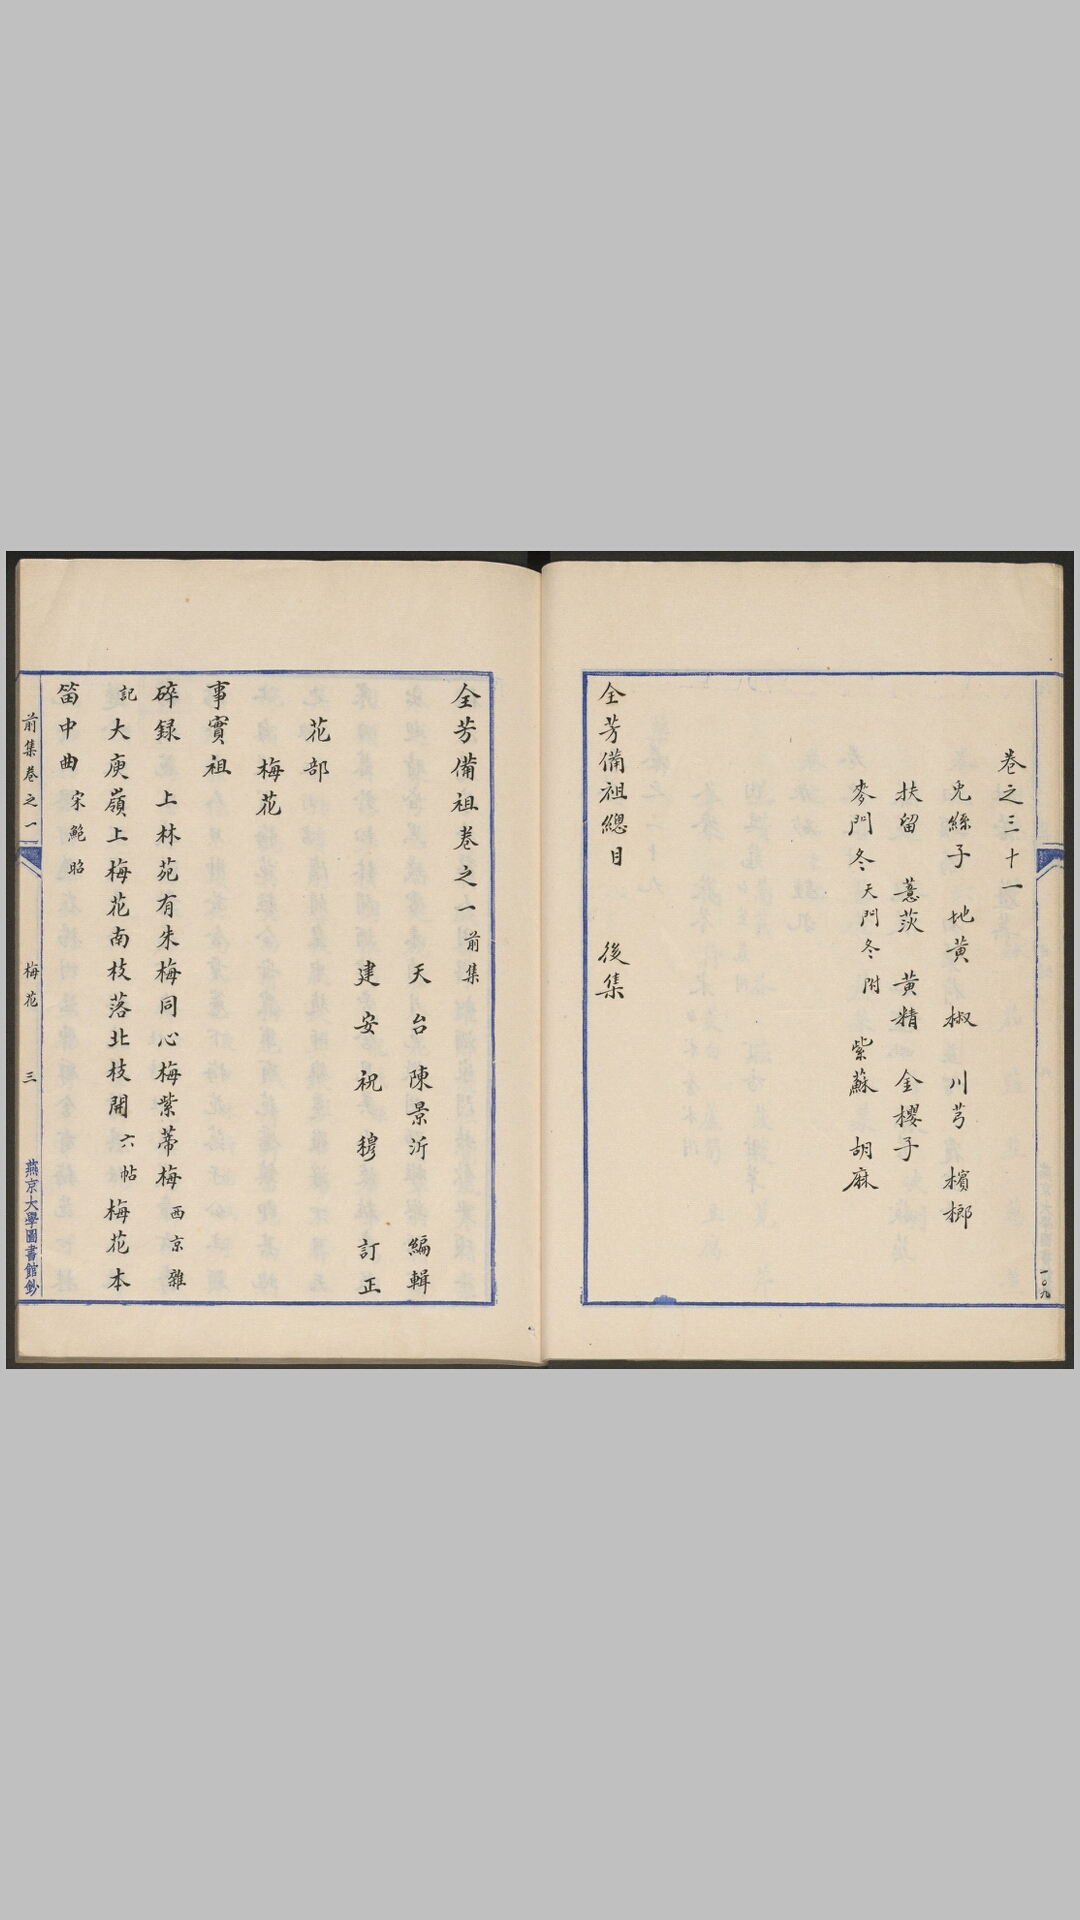 卷之三十一
兔絲子 地黄 椒 川芎 檳榔
扶留 薏苡 黄精 金櫻子
麥門冬 天門冬附 紫蘇 胡麻
全芳備祖總目 後集
一〇九
全芳備祖卷之一 前集
天台陳景沂 編輯
建安祝穆 訂正
花部
梅花
事實祖
碎録 上林苑有朱梅同心梅紫蒂梅 西京雜
記 大庾嶺上梅花南枝落北枝開 六帖 梅花本
笛中曲 宋鮑昭
前集卷之一 梅花 三 燕京大學圖書館鈔